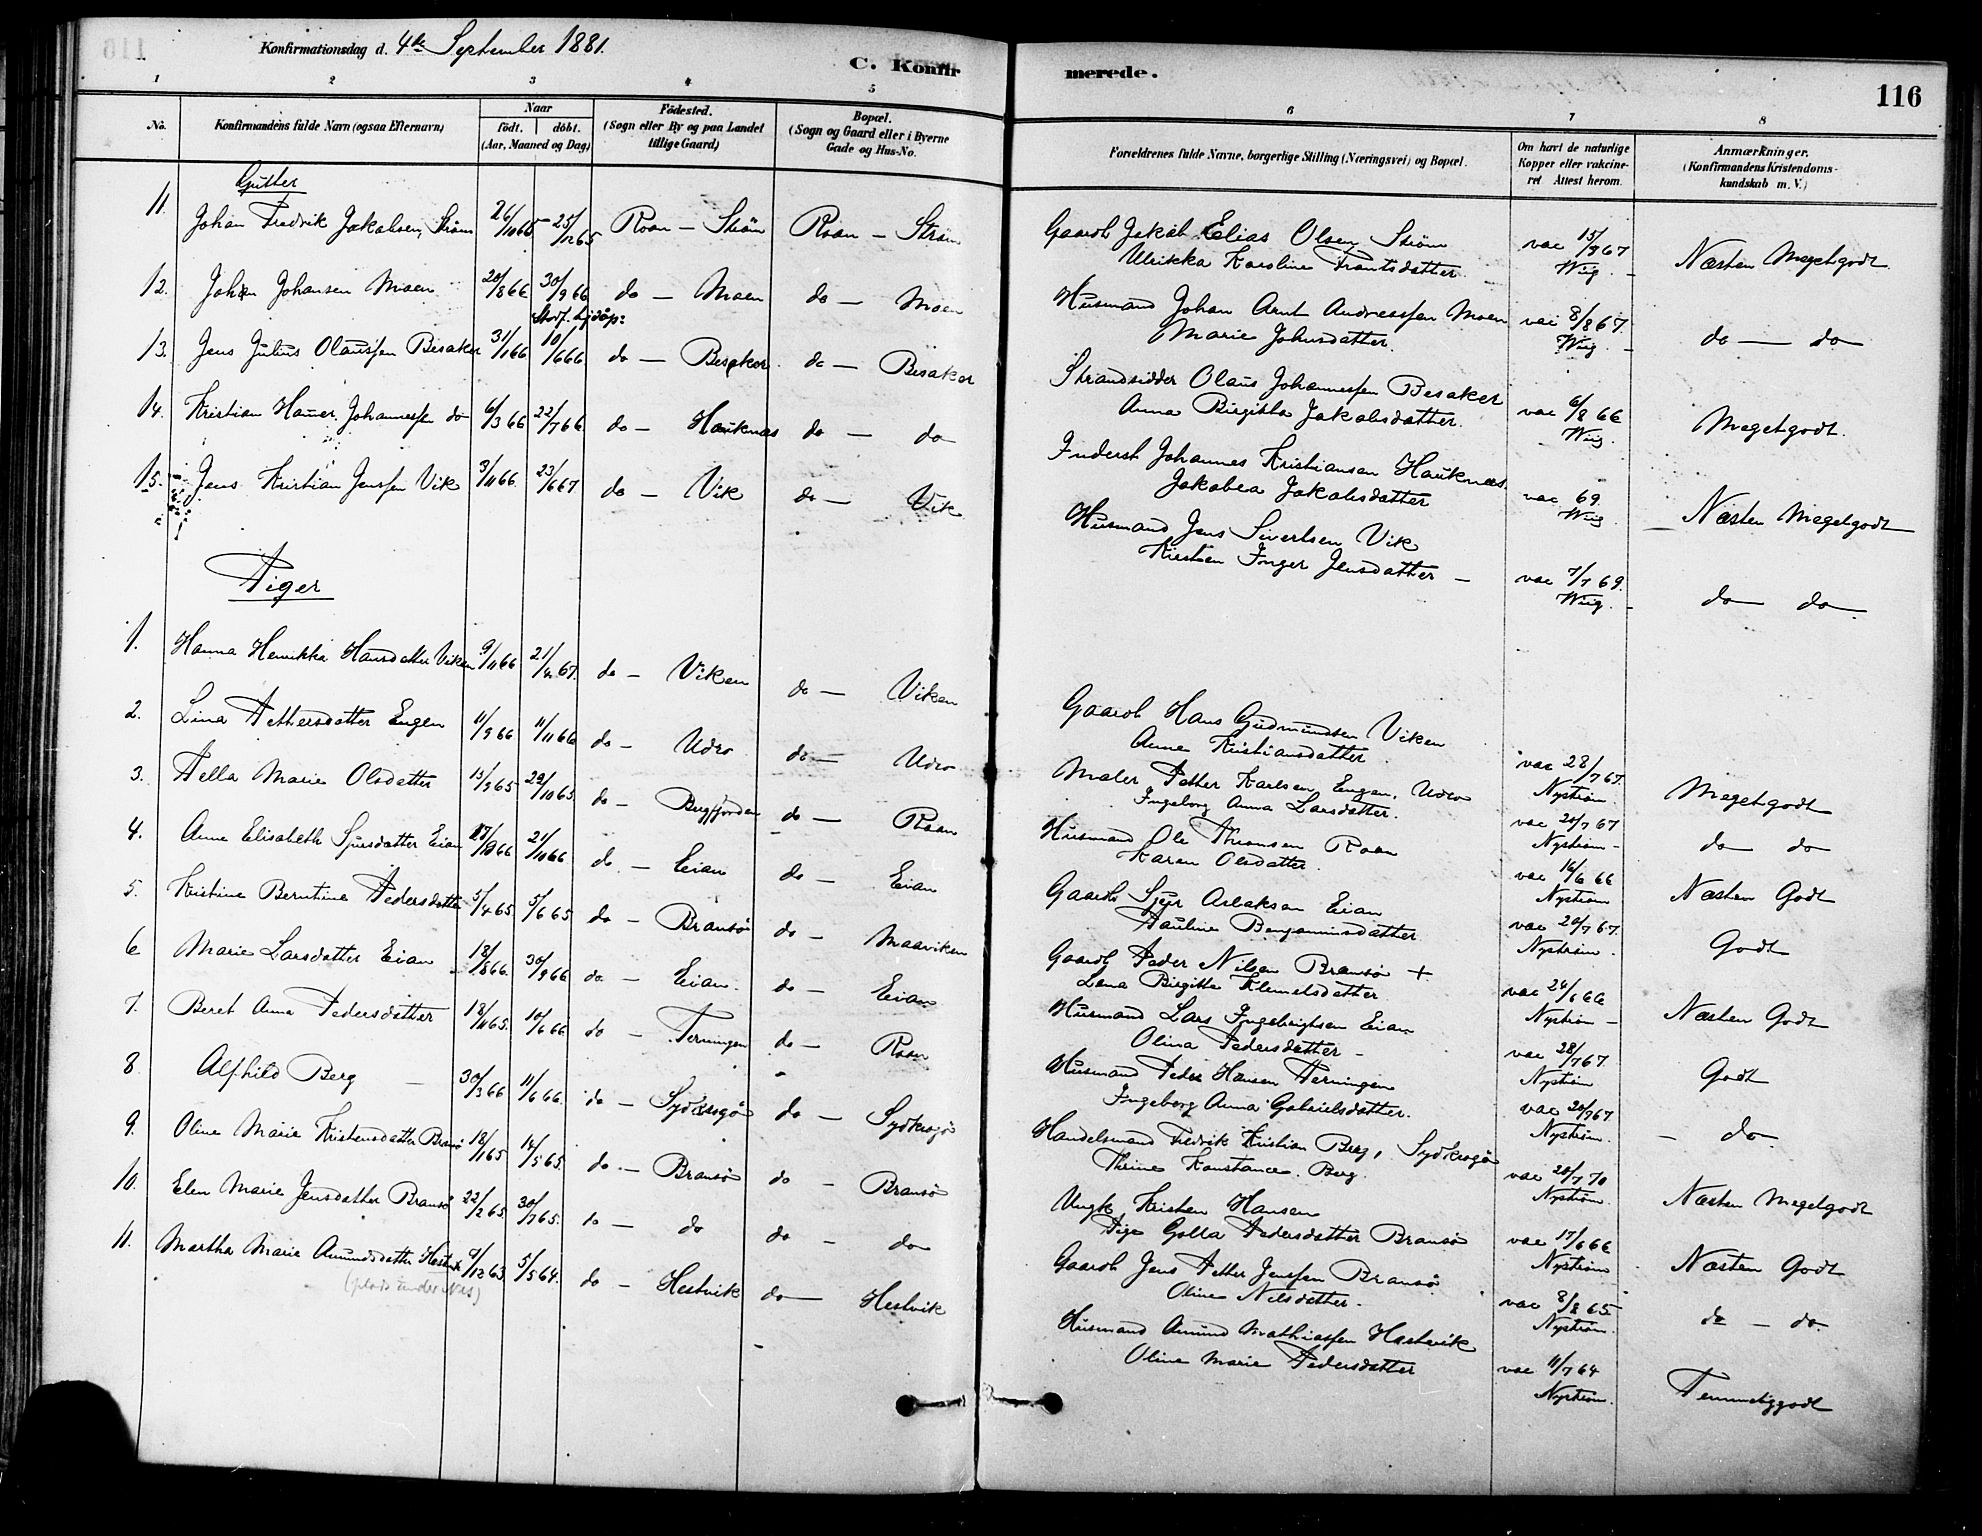 Konfirmationsdag d. 4de September 1881.
C. Konfirmerede.
116
1 2 3 4 5 6 7 8
No.
Konfirmandens fulde Navn (ogsaa Efternavn)
Naar
födt. döbt.
(Aar, Maaned og Dag)
Födested.
(Sogn eller By og paa Landet tillige Gaard)
Bopæl.
(Sogn og Gaard eller i Byerne Gade og Hus-No.
Forældrenes fulde Navne, borgerlige Stilling (Næringsvei) og Bopæl.
Om havt de naturlige Kopper eller vakcineret Attest herom.
Anmærkninger.
(Konfirmandens Kristendomskundskab m. V.)
Gutter
11. Johan Fredrik Jakobsen Ström 26/10 65 25/12 65 Roan — Ström Roan — Ström
Gaardb Jakob Elias Olsen Ström
Ulrikka Karoline Frantsdatter
vac 15/9 67 Wiig. Næsten Megetgodt
12. Johan Johansen Moen 20/8 66 30/9 66 do — Moen do — Moen
Husmand Johan Arnt Andreassen Moen
Marie Johnsdatter
vac 8/8 67. Wiig do — do
13. Jens Julius Olaussen Besaker 31/1 66 10/6 66 do — Besaker do — Besaker
Strandsidder Olaus Johannessen Besaker
Anna Birgitta Jakobsdatter.
vac 6/8 66 Wiig. Megetgodt.
14. Kristian Johannessen do 6/3 66 22/7 66. do — Hauknes do — do
Inderst Johannes Kristiansen Hauknes
Jakobea Jakobsdatter
vac 69 Wiig Næsten Megetgodt
15. Jens Kristian Jenssen Vik 3/11 66. 23/6 67 do — Vik do — Vik
Husmand Jens Sivertsen Vik
Kirsten Inger Jensdatter —
vac 7/7 69. Wiig. do do
Piger
1. Hanna Henrikka Hansdatter Viken 9/11 66 21/4 67. do — Viken do — Viken
Gaardb Hans Gudmundsen Viken
Anne Kristiansdatter
vac 28/7 67. Nyström. Megetgodt
2. Lina Pettersdatter Engen 11/9 66 11/11 66 do — Udro do — Udro
Maler Petter Karlsen Engen, Udro
Ingeborg Anna Larsdatter.
vac 20/7 67 Nyström — do do
3. Pella Marie Olsdatter 13/9 65 29/10 65. do — Bergfjorden do — Roan
Husmand Ole Roan
Karen Olsdatter.
vac 16/6 66 Nyström Næsten Godt
4. Anne Elisabeth Sjursdatter Eian 21/10 66 do. — Eian do — Eian
Gaardb Sjur Aslaksen Eian
Pauline Benjaminsdatter
vac 20/7 67. Nyström. Godt
5. Kristine Berntine Pedersdatter 5/4 65. 5/6 65. do — Bransö do — Maaviken
Gaardb Peder Nilsen Bransö +
Lena Birgitte Klemetsdatter
vac 24/6 66 Nyström — Næsten Godt
6 Marie Larsdatter Eian 18/8 66. 30/9 66 do — Eian. do — Eian
Husmand Lars Ingebrigtsen Eian
Olina Pedersdatter —
vac 28/7 67. Nyström Godt
7. Beret Anna Pedersdatter 18/11 65. 10/6 66 do — Terningen do — Roan
Husmand Peder Hansen Terningen
Ingeborg Anna Gabrielsdatter.
vac 20/7 67 Nyström. — do
8 Alfhild Berg — 30/3 66 11/6 66. do — Sydkrogö do — Sydkrogö
Handelsmand Fredrik Kristian Berg, Sydkrogö
Thrine Konstance Berg.
vac 20/7 70 Nyström. Næsten Megetgodt
9. Oline Marie Kristensdatter Bransö 18/1 65 14/5 65. do. — Bransö do — Bransö
Ungk Kristen Hansen
Pige Golla Pedersdatter Bransö
vac 17/6 66 Nyström Næsten Godt
10. Elen Marie Jensdatter Bransö 22/2 65. 30/7 65. do — do do — do
Gaardb Jens Petter Jenssen Bransö
Oline Nilsdatter.
vac 8/8 65 Nyström. do — do.
11. Martha Marie Amundsdatter Hestvik 9/12 63. 5/5 64. do — Hestvik do — Hestvik
(plads under Nes)
Husmand Amund Mathiassen Hestvik
Oline Marie Pedersdatter
vac 11/7 64 Nyström. Temmeliggodt